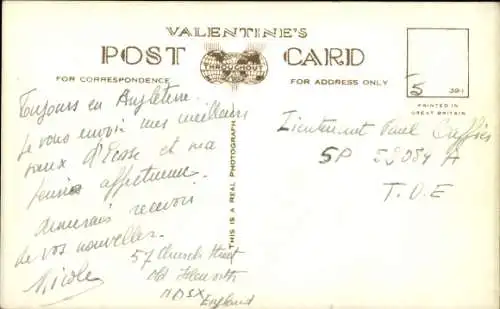 VALENTINE'S
POST CARD
THROUGHOUT
FOR CORRESPONDENCE
FOR ADDRESS ONLY
5 39-1
PRINTED IN
GREAT BRITAIN
THIS IS A REAL PHOTOGRAPH
Toujours en Angleterre.
Je vous envoie mes meilleurs
vœux d'Ecosse et ma
pensée affectueuse.
Aimerais recevoir
de vos nouvelles.
Nicole
57 Church Street
Old Isleworth
MDSX England
Lieutenant Paul
SP 52084 A
T.O.E